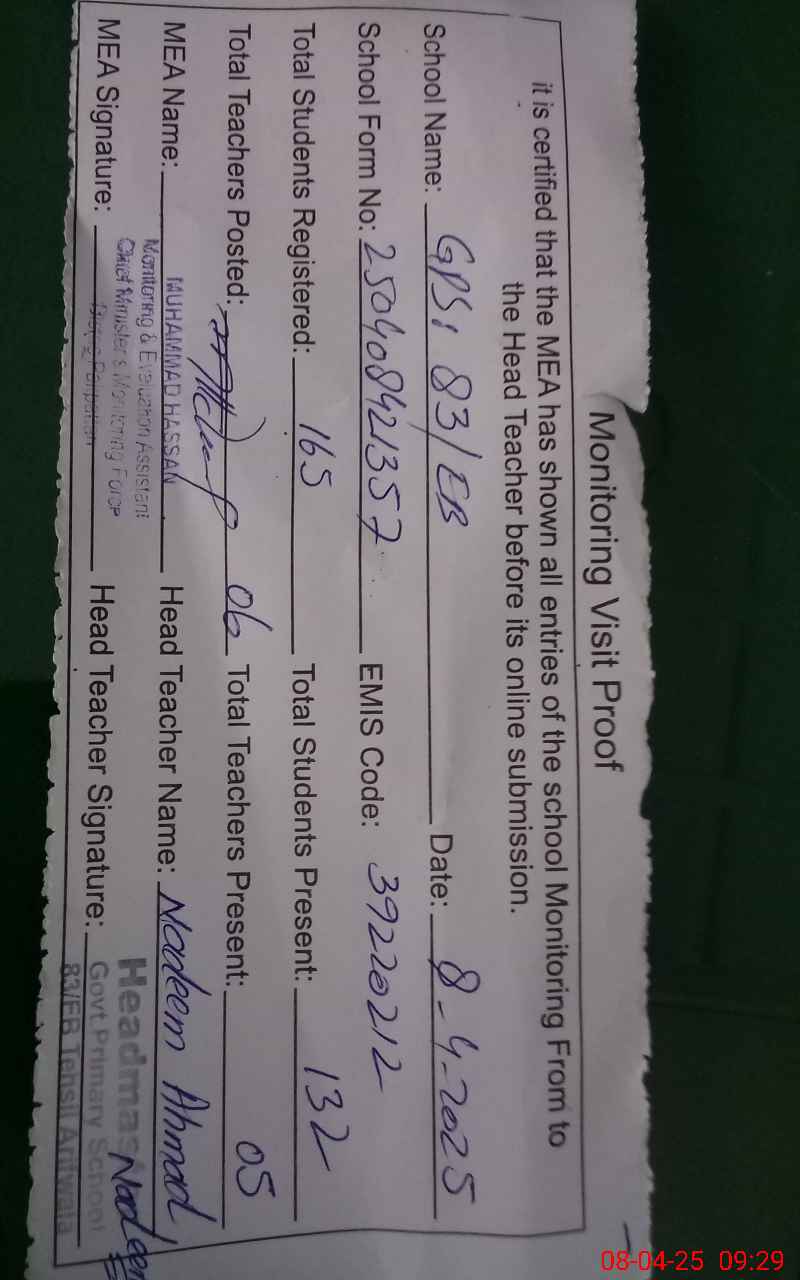 Monitoring Visit Proof
it is certified that the MEA has shown all entries of the school Monitoring From to
the Head Teacher before its online submission.
School Name: GPS: 83/EB Date: 8-4-2025
School Form No: 250408421357 EMIS Code: 39220212
Total Students Registered: 165 Total Students Present: 132
Total Teachers Posted: 06 Total Teachers Present: 05
MEA Name: MUHAMMAD HASSAN Head Teacher Name: Nadeem Ahmad
Monitoring & Evaluation Assistant
Chief Minister's Monitoring Force
MEA Signature: Head Teacher Signature: Nadeem
Govt.Primary School
83/EB Tehsil Arifwala
08-04-25 09:29